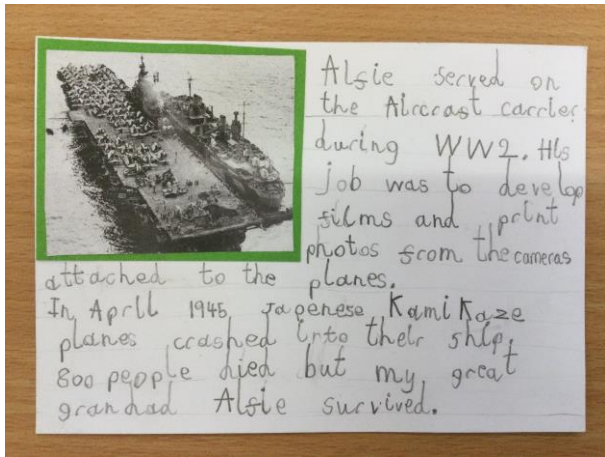 Alfie served on
the Aircraft carrier
during WW2. His
job was to develop
films and print
photos from the cameras
attached to the planes.
In April 1945 Japenese KamiKaze
planes crashed into their ship.
800 people died but my great
grandad Alfie survived.